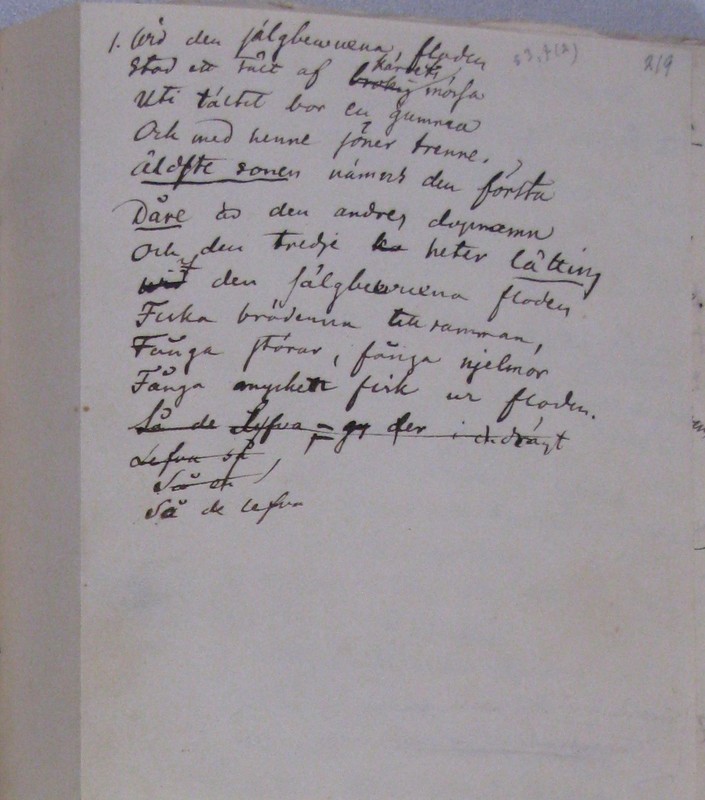 53,4(2) 219
1. Wid den sälgbewuxna floden
Stod ett tält af brokig kärrets mossa
Uti tältet bor en gumma
Och med henne söner trenne.
Äldste sonen nämns den första
Dåre är den andres dopnamn
Och den tredje heter Lätting
wid den sälgbewuxna floden
Fiska bröderna tillsamman,
Fånga störar, fånga njelmor
Fånga mycket fisk ur floden.
Så de Lefva der i endrägt
Lefva så
Så en
Så de lefva